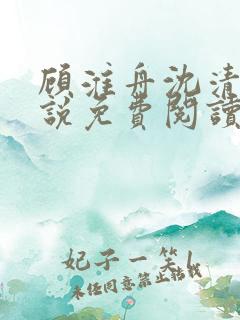 顾淮舟沈清
說免費閱讀
妃子一笑
未经同意禁止转载